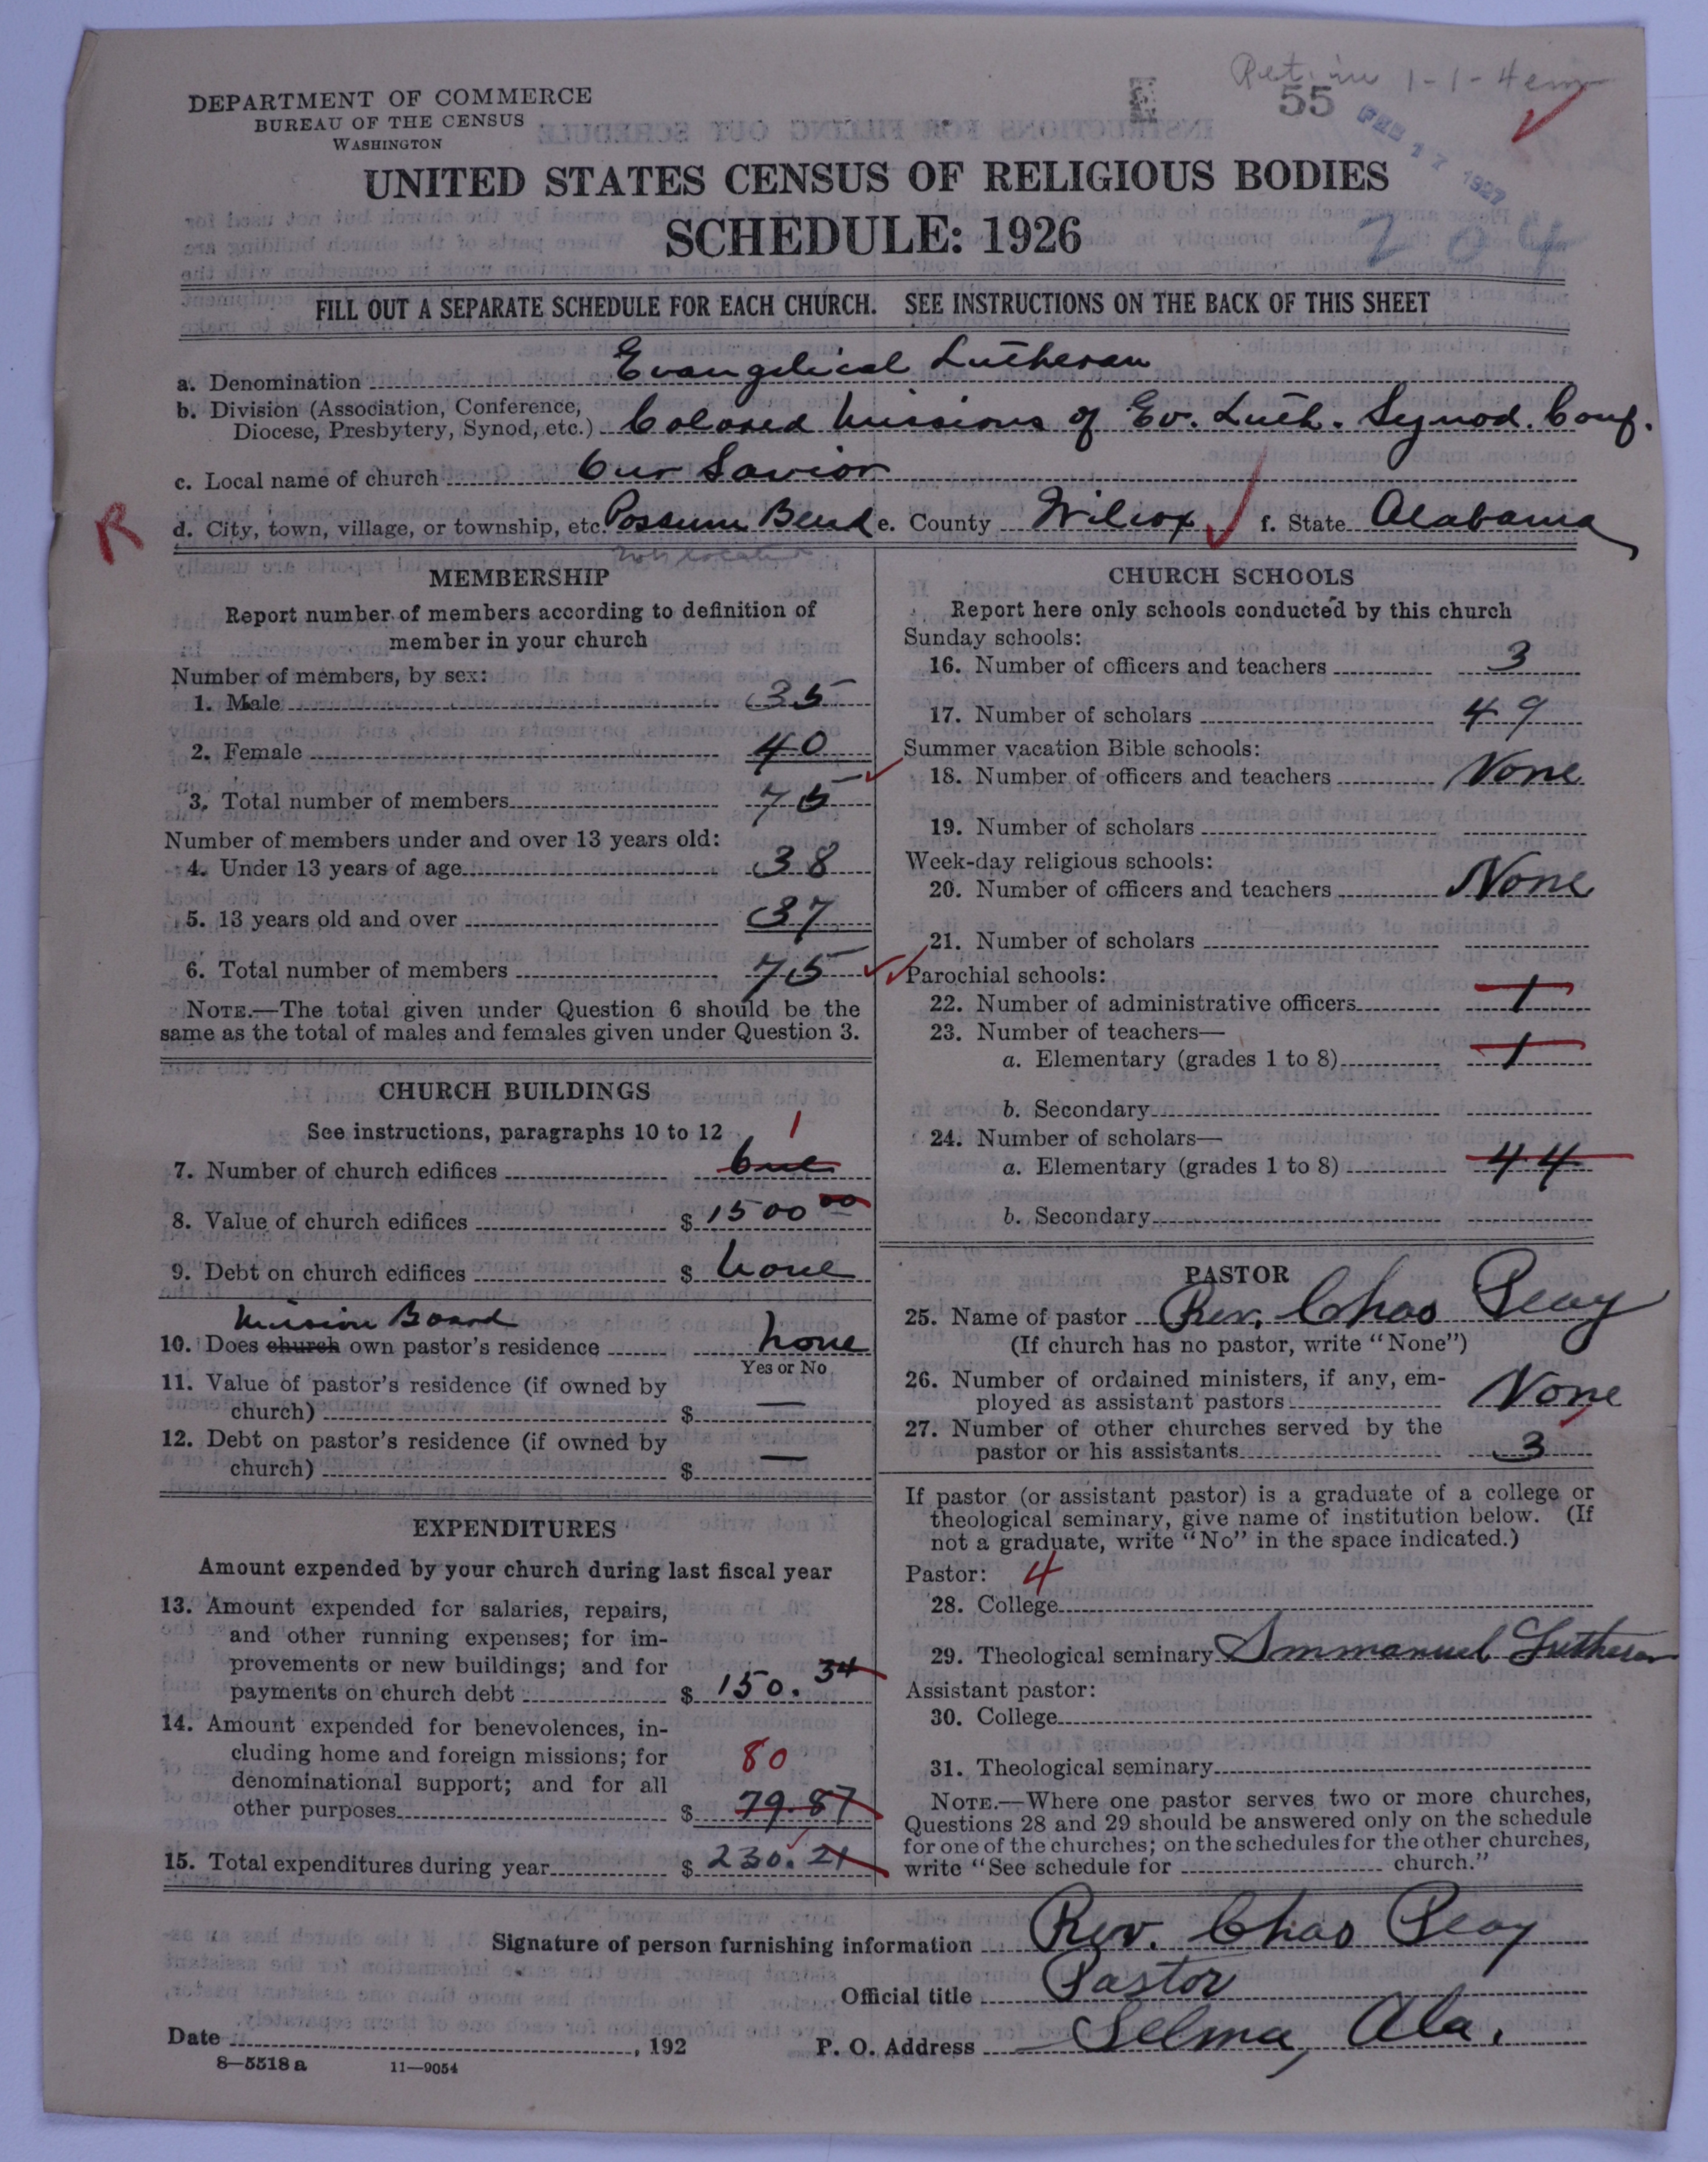 Ret. in 1-1-4 em
DEPARTMENT OF COMMERCE
BUREAU OF THE CENSUS
WASHINGTON
55
FEB 17 1927
UNITED STATES CENSUS OF RELIGIOUS BODIES
SCHEDULE: 1926
204
FILL OUT A SEPARATE SCHEDULE FOR EACH CHURCH. SEE INSTRUCTIONS ON THE BACK OF THIS SHEET
a. Denomination Evangelical Lutheran
b. Division (Association, Conference,
Diocese, Presbytery, Synod, etc.) Colored Missions of Ev. Luth. Synod. Conf.
c. Local name of church Our Savior
R
d. City, town, village, or township, etc. Possum Bend e. County Wilcox f. State Alabama
not located
MEMBERSHIP
Report number of members according to definition of
member in your church
Number of members, by sex:
1. Male 35
2. Female 40
3. Total number of members 75
Number of members under and over 13 years old:
4. Under 13 years of age 38
5. 13 years old and over 37
6. Total number of members 75
NOTE.—The total given under Question 6 should be the
same as the total of males and females given under Question 3.
CHURCH BUILDINGS
See instructions, paragraphs 10 to 12
1
7. Number of church edifices One
8. Value of church edifices $ 1500 00
9. Debt on church edifices $ None
Mission Board
10. Does church own pastor's residence none
Yes or No
11. Value of pastor's residence (if owned by
church) $ —
12. Debt on pastor's residence (if owned by
church) $ —
EXPENDITURES
Amount expended by your church during last fiscal year
13. Amount expended for salaries, repairs,
and other running expenses; for im-
provements or new buildings; and for
payments on church debt $ 150. 34
14. Amount expended for benevolences, in-
cluding home and foreign missions; for
80
denominational support; and for all
other purposes $ 79.87
15. Total expenditures during year $ 230. 21
CHURCH SCHOOLS
Report here only schools conducted by this church
Sunday schools:
16. Number of officers and teachers 3
17. Number of scholars 49
Summer vacation Bible schools:
18. Number of officers and teachers None
19. Number of scholars
Week-day religious schools:
20. Number of officers and teachers None
21. Number of scholars
Parochial schools:
22. Number of administrative officers 1
23. Number of teachers—
a. Elementary (grades 1 to 8) 1
b. Secondary
24. Number of scholars—
a. Elementary (grades 1 to 8) 44
b. Secondary
PASTOR
25. Name of pastor Rev. Chas Peay
(If church has no pastor, write "None")
26. Number of ordained ministers, if any, em-
ployed as assistant pastors None
27. Number of other churches served by the
pastor or his assistants 3
If pastor (or assistant pastor) is a graduate of a college or
theological seminary, give name of institution below. (If
not a graduate, write "No" in the space indicated.)
Pastor: 4
28. College
29. Theological seminary Immanuel Lutheran
Assistant pastor:
30. College
31. Theological seminary
NOTE.—Where one pastor serves two or more churches,
Questions 28 and 29 should be answered only on the schedule
for one of the churches; on the schedules for the other churches,
write "See schedule for church."
Signature of person furnishing information Rev. Chas Peay
Official title Pastor
Date , 192 P. O. Address Selma, Ala.
8—5518 a 11—9054